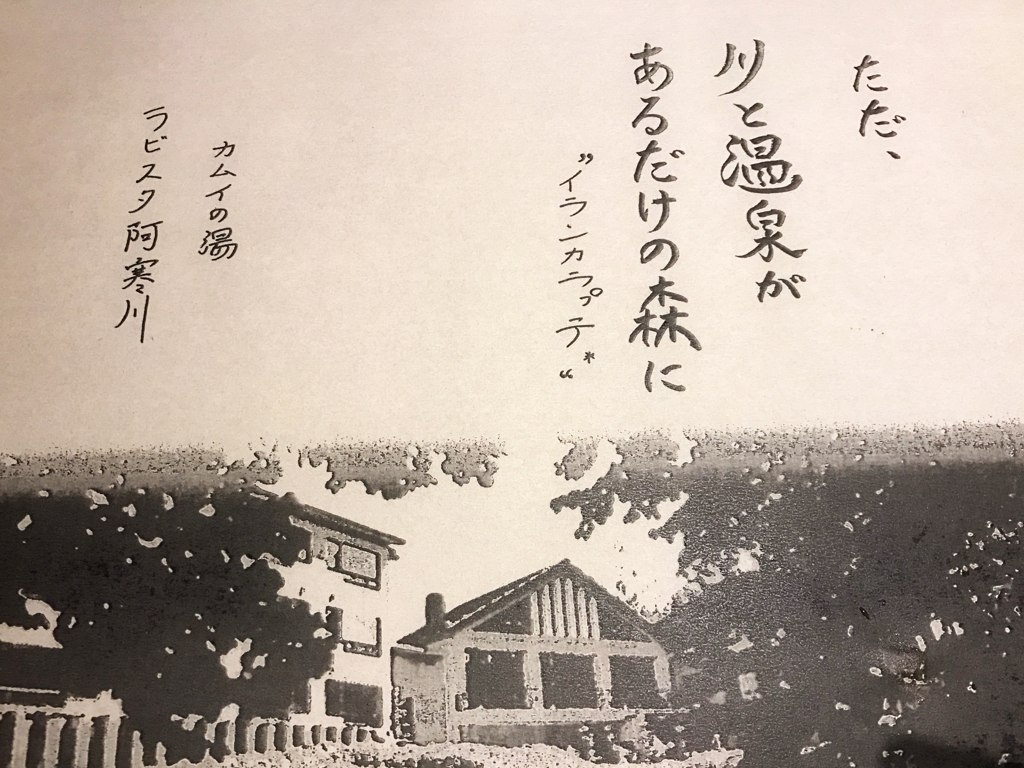 ただ、
川と温泉が
あるだけの森に
"イランカラㇷ゚テ*"
カムイの湯
ラビスタ阿寒川